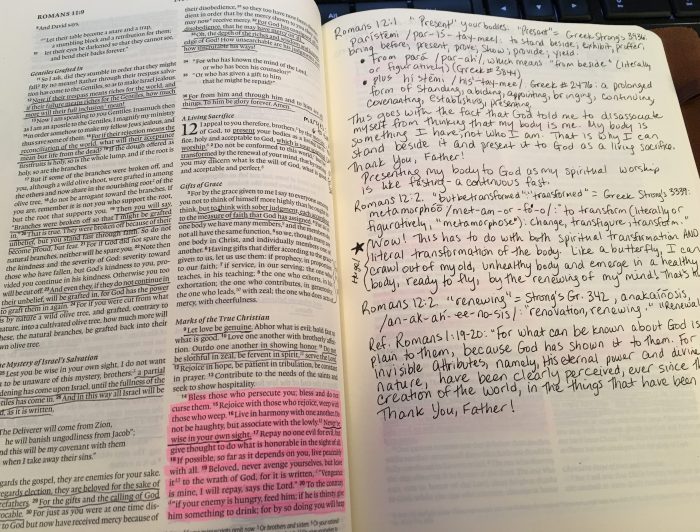 ROMANS 11:9
9 And David says,
"Let their table become a snare and a trap,
a stumbling block and a retribution for them;
10 let their eyes be darkened so that they cannot see,
and bend their backs forever."
Gentiles Grafted In
11 So I ask, did they stumble in order that they might
fall? By no means! Rather through their trespass salva-
tion has come to the Gentiles, so as to make Israel jealous.
12 Now if their trespass means riches for the world, and
if their failure means riches for the Gentiles, how much
more will their full inclusion mean!
13 Now I am speaking to you Gentiles. Inasmuch then
as I am an apostle to the Gentiles, I magnify my ministry
14 in order somehow to make my fellow Jews jealous, and
thus save some of them. 15 For if their rejection means the
reconciliation of the world, what will their acceptance
mean but life from the dead? 16 If the dough offered as
firstfruits is holy, so is the whole lump, and if the root is
holy, so are the branches.
17 But if some of the branches were broken off, and
you, although a wild olive shoot, were grafted in among
the others and now share in the nourishing root of the
olive tree, 18 do not be arrogant toward the branches. If
you are, remember it is not you who support the root,
but the root that supports you. 19 Then you will say,
"Branches were broken off so that I might be grafted
in." 20 That is true. They were broken off because of their
unbelief, but you stand fast through faith. So do not
become proud, but fear. 21 For if God did not spare the
natural branches, neither will he spare you. 22 Note then
the kindness and the severity of God: severity toward
those who have fallen, but God's kindness to you, pro-
vided you continue in his kindness. Otherwise you too
will be cut off. 23 And even they, if they do not continue in
their unbelief, will be grafted in, for God has the power
to graft them in again. 24 For if you were cut from what
is by nature a wild olive tree, and grafted, contrary to
nature, into a cultivated olive tree, how much more will
these, the natural branches, be grafted back into their
own olive tree.
The Mystery of Israel's Salvation
25 Lest you be wise in your own sight, I do not want
you to be unaware of this mystery, brothers: a partial
hardening has come upon Israel, until the fullness of the
Gentiles has come in. 26 And in this way all Israel will be
saved, as it is written,
"The Deliverer will come from Zion,
he will banish ungodliness from Jacob";
"and this will be my covenant with them
when I take away their sins."
regards the gospel, they are enemies for your sake.
regards election, they are beloved for the sake of
forefathers. 29 For the gifts and the calling of God
irrevocable. 30 For just as you were at one time dis-
to God but now have received mercy because of
their disobedience, 31 so they too have now been diso-
bedient in order that by the mercy shown to you they
may now receive mercy. 32 For God has consigned all to
disobedience, that he may have mercy on all.
33 Oh, the depth of the riches and wisdom and
knowledge of God! How unsearchable are his judgments and
how inscrutable his ways!
34 "For who has known the mind of the Lord,
or who has been his counselor?"
35 "Or who has given a gift to him
that he might be repaid?"
36 For from him and through him and to him are all
things. To him be glory forever. Amen.
A Living Sacrifice
12 I appeal to you therefore, brothers, by the mercies
of God, to present your bodies as a living sacri-
fice, holy and acceptable to God, which is your spiritual
worship. 2 Do not be conformed to this world, but be
transformed by the renewal of your mind, that by testing
you may discern what is the will of God, what is good
and acceptable and perfect.
Gifts of Grace
3 For by the grace given to me I say to everyone among
you not to think of himself more highly than he ought to
think, but to think with sober judgment, each according
to the measure of faith that God has assigned. 4 For as in
one body we have many members, and the members do
not all have the same function, 5 so we, though many, are
one body in Christ, and individually members one of
another. 6 Having gifts that differ according to the grace
given to us, let us use them: if prophecy, in proportion
to our faith; 7 if service, in our serving; the one who
teaches, in his teaching; 8 the one who exhorts, in his
exhortation; the one who contributes, in generosity;
the one who leads, with zeal; the one who does acts of
mercy, with cheerfulness.
Marks of the True Christian
9 Let love be genuine. Abhor what is evil; hold fast to
what is good. 10 Love one another with brotherly affec-
tion. Outdo one another in showing honor. 11 Do not
be slothful in zeal, be fervent in spirit, serve the Lord.
12 Rejoice in hope, be patient in tribulation, be constant
in prayer. 13 Contribute to the needs of the saints and
seek to show hospitality.
14 Bless those who persecute you; bless and do not
curse them. 15 Rejoice with those who rejoice, weep with
those who weep. 16 Live in harmony with one another. Do
not be haughty, but associate with the lowly. Never be
wise in your own sight. 17 Repay no one evil for evil, but
give thought to do what is honorable in the sight of all.
18 If possible, so far as it depends on you, live peaceably
with all. 19 Beloved, never avenge yourselves, but leave
it to the wrath of God, for it is written, "Vengeance
is mine, I will repay, says the Lord." 20 To the contrary,
"if your enemy is hungry, feed him; if he is thirsty, give
him something to drink; for by so doing you will heap
Romans 12:1. "Present" your bodies: "Present" = Greek Strong's 3936.
paristēmi /par-is-tay-mee/: to stand beside; exhibit, proffer,
bring before, present, prove, show, provide, yield.
• From para /par-ah/, which means "from beside" (literally
or figuratively) (Greek #3844)
• plus histēmi /his-tay-mee/: Greek #2476: a prolonged
form of standing, abiding, appointing, bringing, continuing,
covenanting, establishing, presenting.
This goes with the fact that God told me to disassociate
myself from thinking that my body is me. My body is
something I have, not who I am. That is why I can
stand beside it and present it to God as a living sacrifice.
Thank You, Father!
Presenting my body to God as my spiritual worship
is like fasting - a continuous fast.
Romans 12:2. "but be transformed": "transformed" = Greek Strong's 3339:
metamorphoō /met-am-or-fo'-o/: "to transform (literally or
figuratively, "metamorphose"): change, transfigure, transform.
Wow! This has to do with both spiritual transformation AND
literal transformation of the body. Like a butterfly, I can
crawl out of my old, unhealthy body and emerge in a healthy
body, ready to fly, by the renewing of my mind. That's
Huge!
Romans 12:2 "renewing" = Strong's Gr. 342, anakaínōsis,
/an-ak-ah'-ee-no-sis/: "renovation, renewing." "Renewal
Ref. Romans 1:19-20: "For what can be known about God is
plain to them, because God has shown it to them. For
invisible attributes, namely, His eternal power and divine
nature, have been clearly perceived, ever since the
creation of the world, in the things that have been
Thank You, Father!